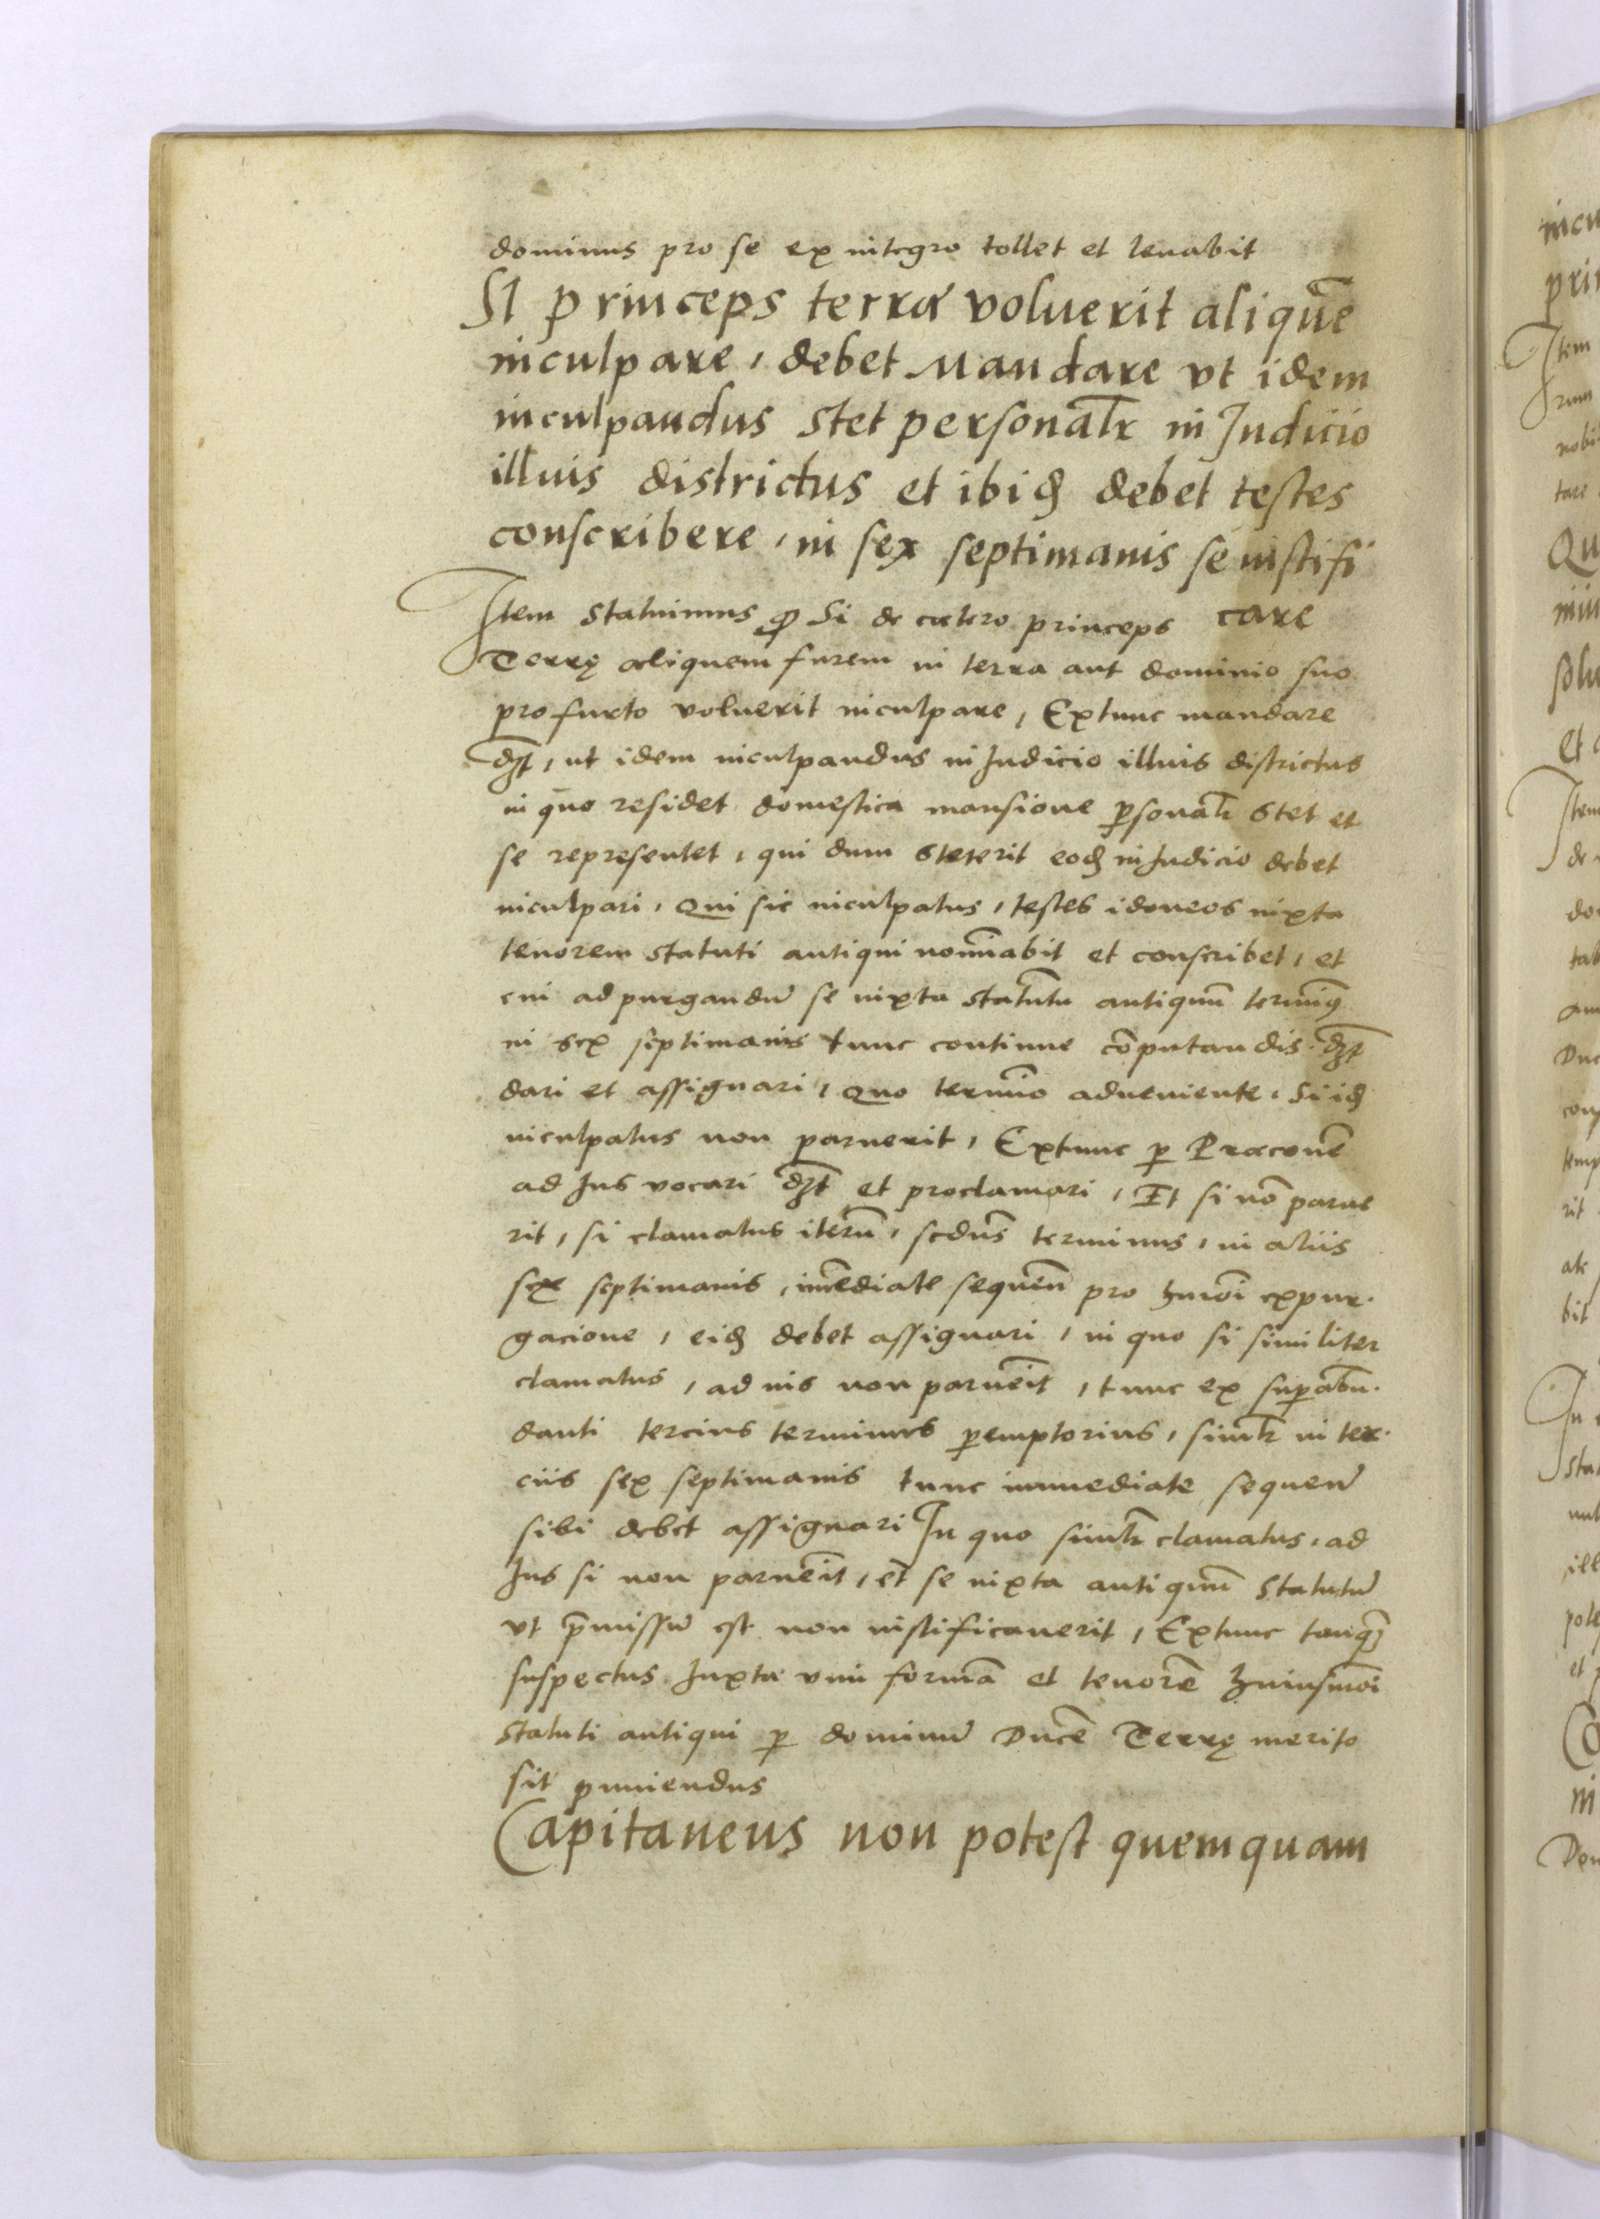 dominus pro se ex integro tollet et leuabit
SI princeps terræ voluerit aliquē
inculpare, debet Mandare vt idem
inculpandus stet personalr in Judicio
illius districtus et ibid debet testes
conscribere, in sex septimanis se iustifi
care
Item statuimus Si de cætero princeps
Terrę aliquem furem in terra aut dominio suo
pro furto voluerit inculpare, Extunc mandare
dꝫt, ut idem inculpandus in Judicio illius districtus
in quo residet domestica mansione ꝑsonalr stet et
se repręsentet, qui dum steterit eod in Judicio debet
inculpari, Qui sic inculpatus, testes idoneos iuxta
tenorem statuti antiqui nomīabit et conscribet, et
cui ad purgandū se iuxta statutū antiquū termīꝯ
in sex septimanis tunc continue cōputandis dꝫt
dari et assignari, Quo termīo adueniente, Si id
inculpatus non paruerit, Extunc ꝑ Præconē
ad Jus vocari dꝫt et proclamari, Et si nō parue
rit, si clamatus iterū, scdus terminus, in aliis
sex septimanis, imēdiate sequen̄ pro hmōi expur-
gacione, eid debet assignari, in quo si similiter
clamatus, ad ius non paruerit, tunc ex suꝑabū-
danti tercius terminus ꝑemptorius, simlr in ter-
ciis sex septimanis tunc immediate sequen̄
sibi debet assignari In quo simlr clamatus, ad
Jus si non paruerit, et se iuxta antiquū statutū
vt p̄missū est non iustificauerit, Extunc tanq̄
suspectus Juxta vim formā et tenorē huiusmōi
statuti antiqui ꝑ dominū Ducē Terrę merito
sit puniendus
Capitaneus non potest quemquam